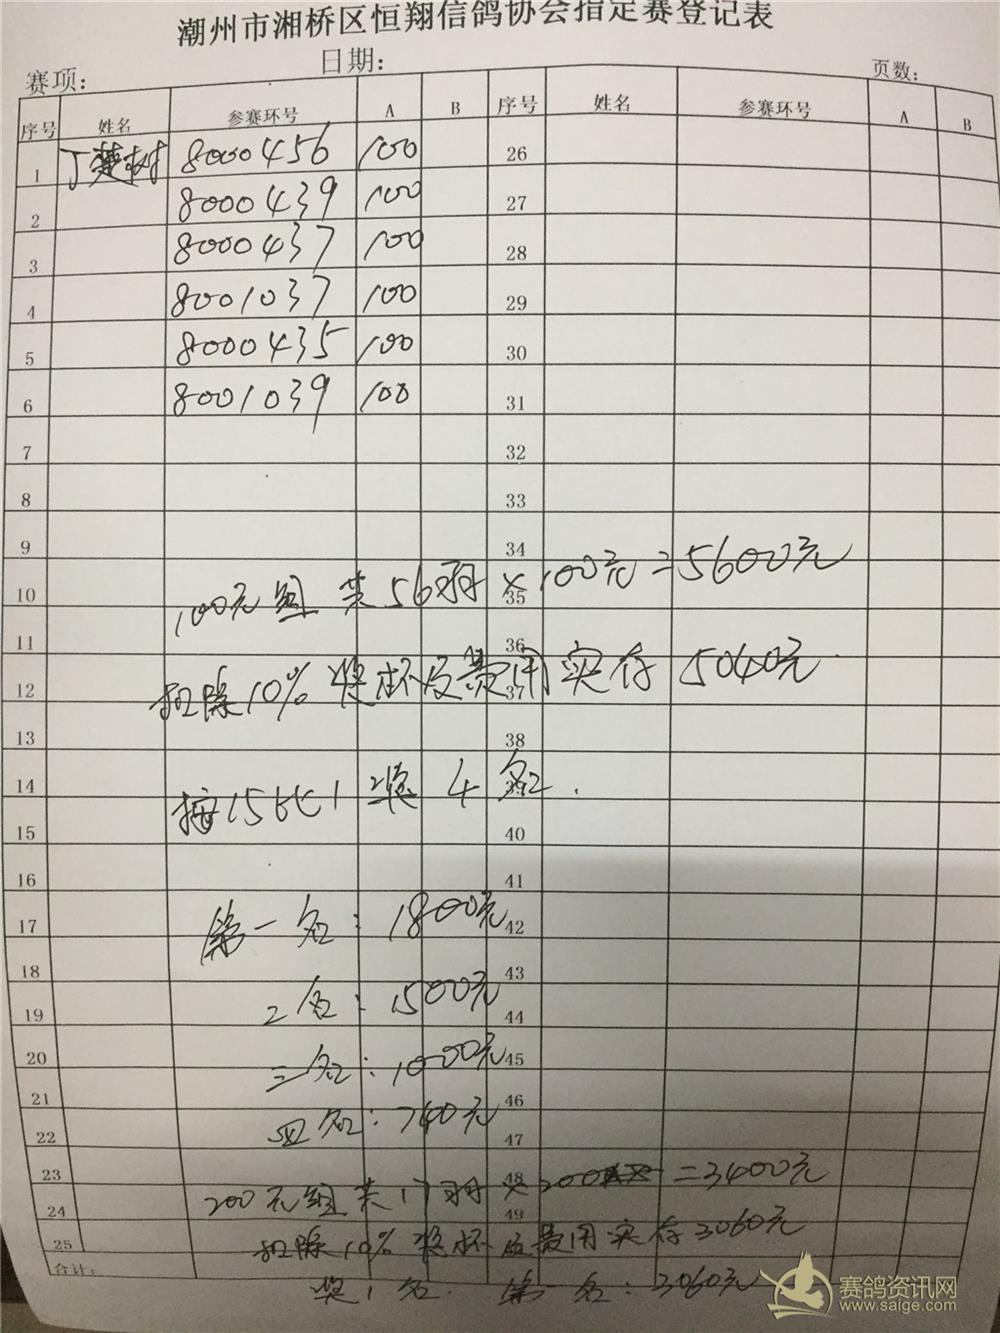 潮州市湘桥区恒翔信鸽协会指定赛登记表
赛项: 日期: 页数:
序号 姓名 参赛环号 A B 序号 姓名 参赛环号 A B
1 丁楚树 8000456 100 26
2 8000439 100 27
3 8000437 100 28
4 8001037 100 29
5 8000435 100 30
6 8001039 100 31
7 32
8 33
9 34
100元组共56羽×100元=5600元
10 35
11 36
扣除10%奖杯及费用实存5040元
12 37
13 38
按15比1奖4名.
14 39
15 40
16 41
第一名:1800元
17 42
18 43
二名:1500元
19 44
三名:1000元
20 45
21 46
四名:740元
22 47
23 48
200元组共17羽×200 =3400元
24 49
扣除10%奖杯及费用实存3060元
25
合计:
奖1名. 第一名:3060元
赛鸽资讯网
www.saige.com